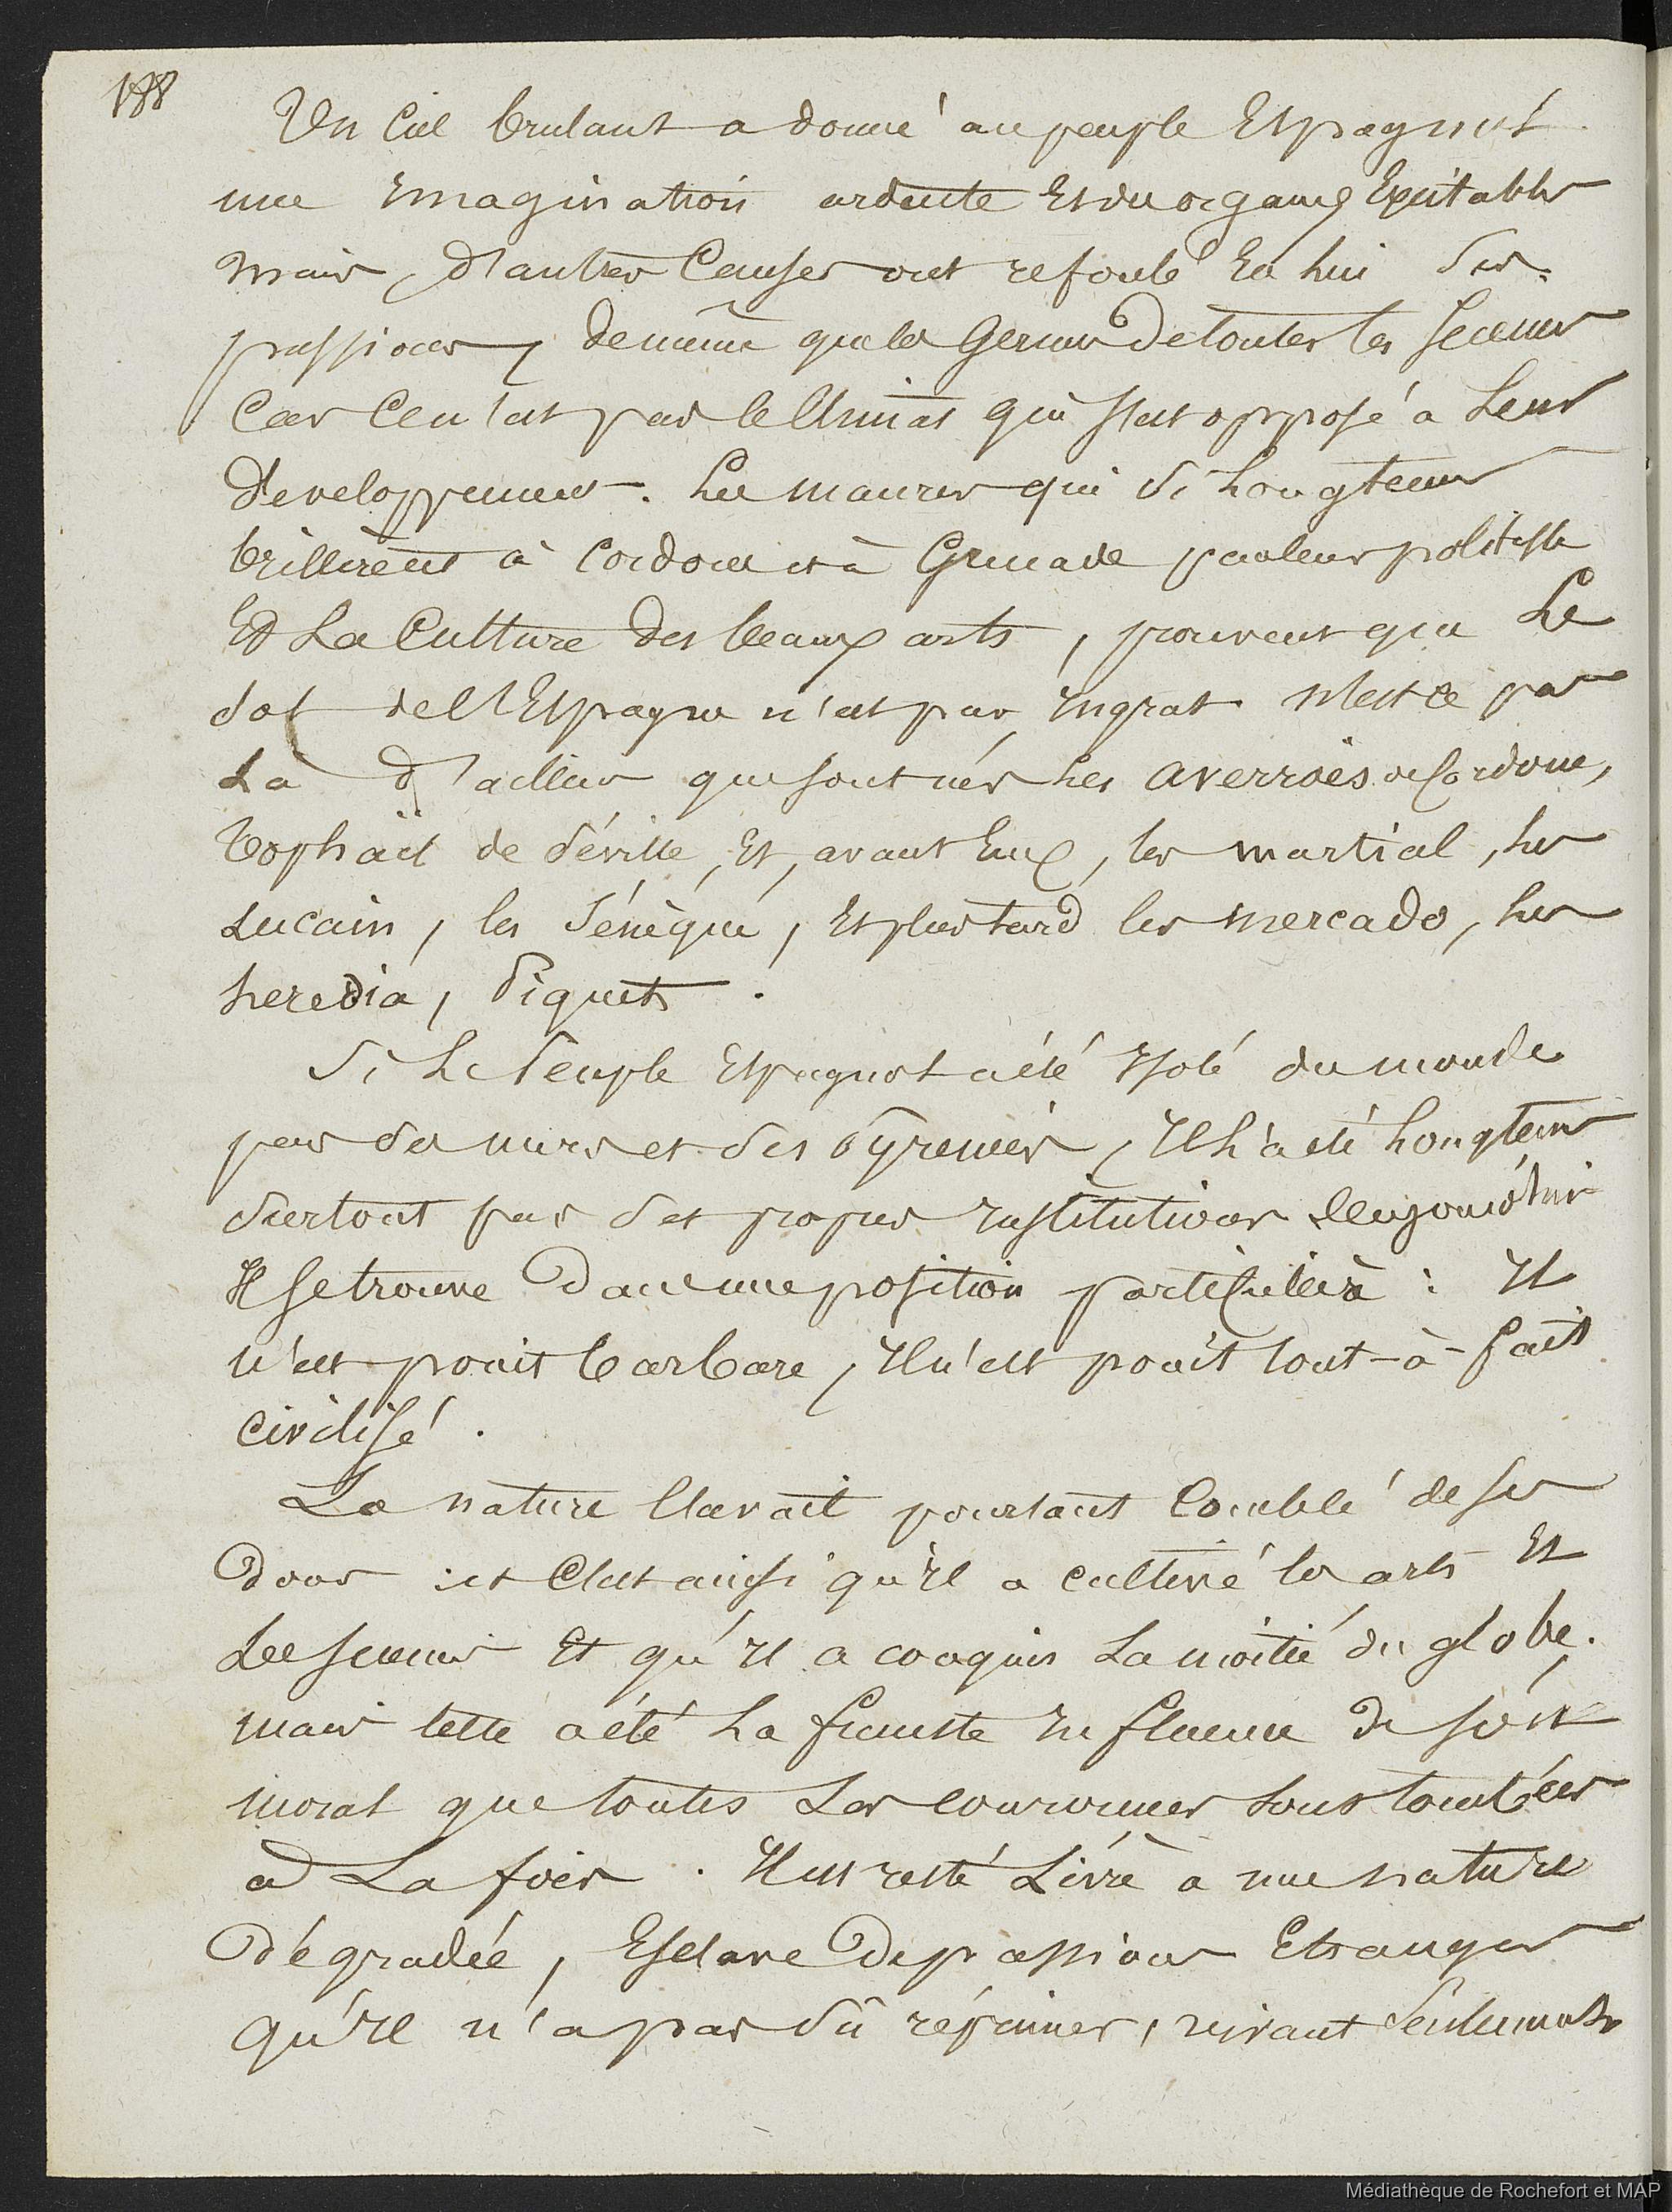 188
Un Ciel brulant a donné au peuple Espagnol
une Imagination ardente Et des organes Exitables
mais, d'autres Causes ont refoulé En lui Ses
passions, de même que les Germes de toutes les Sciences
Car Ce n'est pas le Climat qui s'est opposé a Leur
Développement. Les maures qui Si Longtems
brillèrent à Cordoue et à Grenade par leur politesse
Et La Culture des beaux arts, prouvent que Le
Sol de l'Espagne n'est pas Ingrat n'est ce pas
Là d'ailleurs que sont nés Les averroès de Cordoue,
Tophaïl de Séville, Et, avant Eux, les martial, les
Lucain, les Sénèque, Et plus tard les mercado, les
heredia, Piquets.
Si Le Peuple Espagnol a été Isolé du monde
par des mers et des Pyrenées, Il l'a été Longtems
Surtout par Ses propres Institutions aujourd'hui
Il se trouve Dans une position particulière : Il
n'est point barbare, Il n'est point tout-à-fait
civilisé.
La nature l'avait pourtant Comblé de ses
Dons : et C'est ainsi qu'il a cultivé les arts Et
Les sciences Et qu'Il a conquis La moitié du globe.
mais telle a été La funeste Influence de son
moral que toutes Les couronnes sont tombées
a La fois. Il est resté Livré a une nature
Dégradée, Esclave De passions Etrangères
qu'Il n'a pas Sû réprimer, vivant Seulement
Médiathèque de Rochefort et MAP